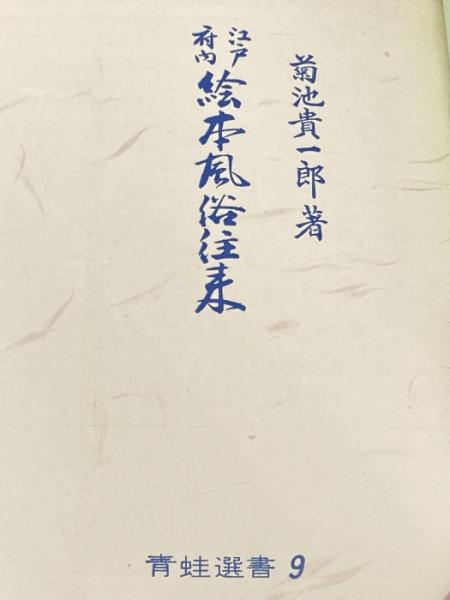 菊池貴一郎著
江戸
府内
絵本風俗往来
青蛙選書 9